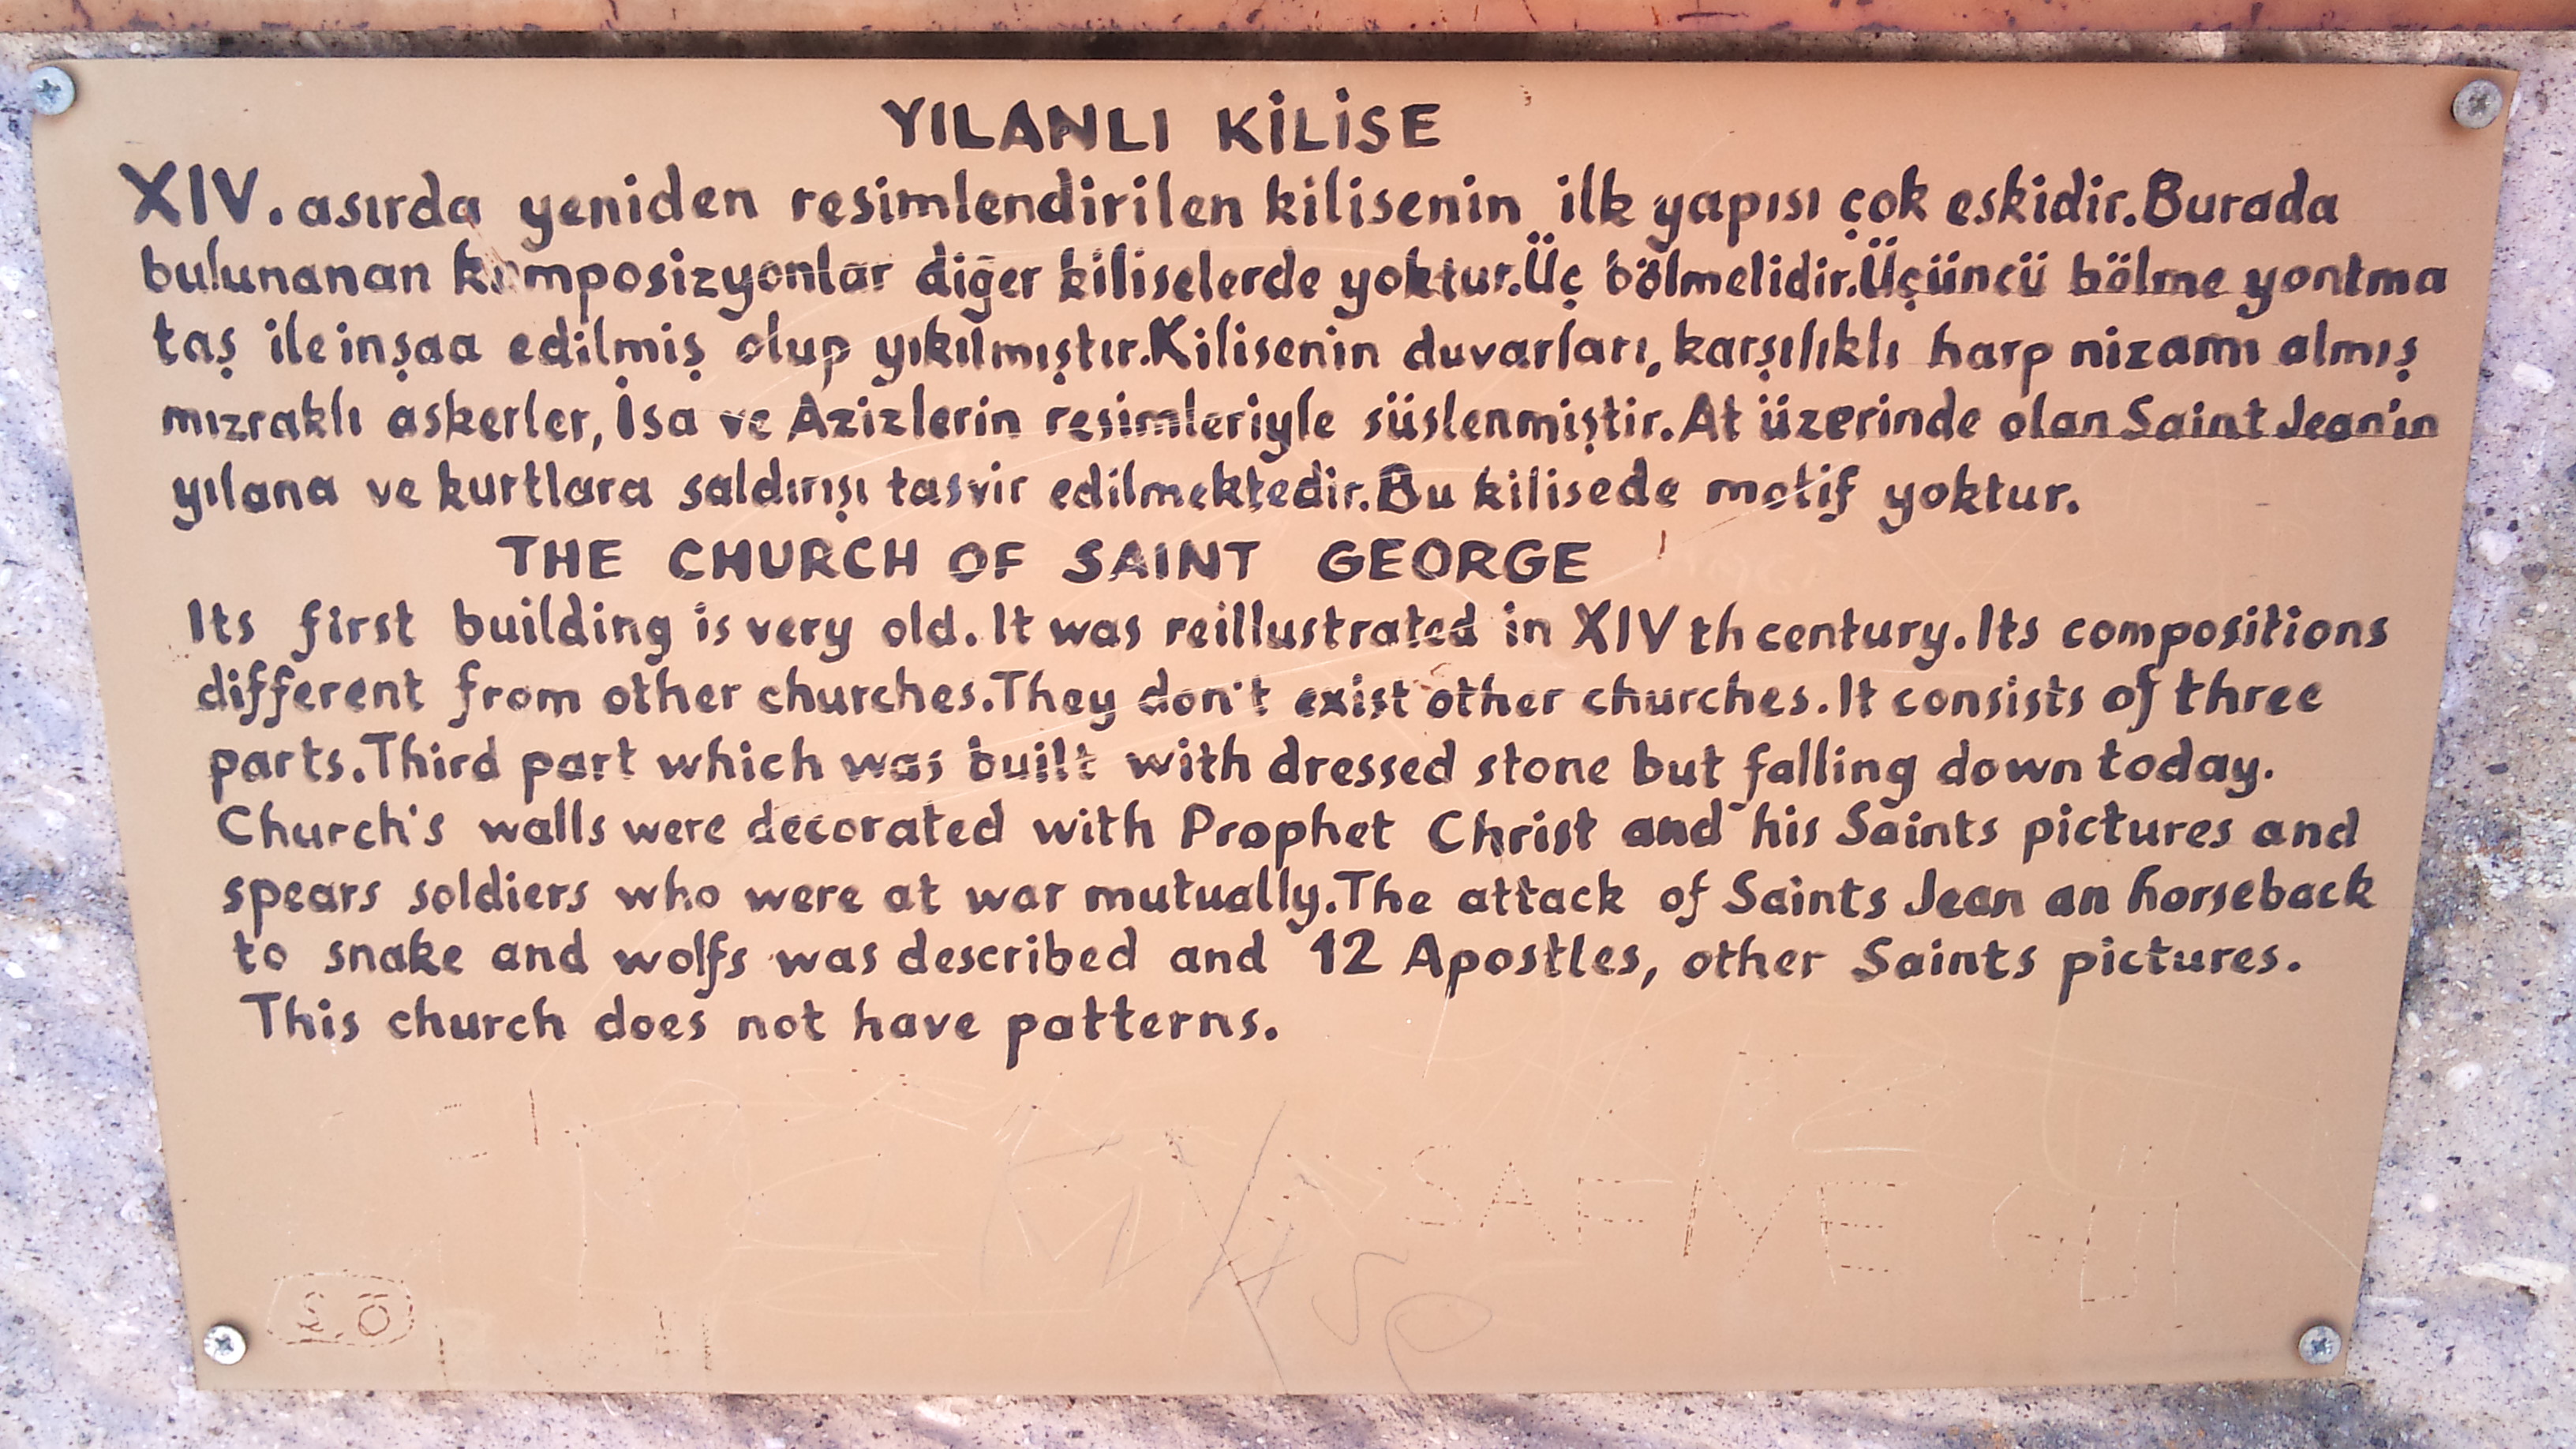 YILANLI KİLİSE
XIV. asırda yeniden resimlendirilen kilisenin ilk yapısı çok eskidir. Burada
bulunanan komposizyonlar diğer kiliselerde yoktur. Üç bölmelidir. Üçüncü bölme yontma
taş ile inşaa edilmiş olup yıkılmıştır. Kilisenin duvarları, karşılıklı harp nizamı almış
mızraklı askerler, İsa ve Azizlerin resimleriyle süslenmiştir. At üzerinde olan Saint Jean'in
yılana ve kurtlara saldırışı tasvir edilmektedir. Bu kilisede motif yoktur.
THE CHURCH OF SAINT GEORGE
Its first building is very old. It was reillustrated in XIV th century. Its compositions
different from other churches. They don't exist other churches. It consists of three
parts. Third part which was built with dressed stone but falling down today.
Church's walls were decorated with Prophet Christ and his Saints pictures and
spears soldiers who were at war mutually. The attack of Saints Jean an horseback
to snake and wolfs was described and 12 Apostles, other Saints pictures.
This church does not have patterns.
SAFİYE GÜL